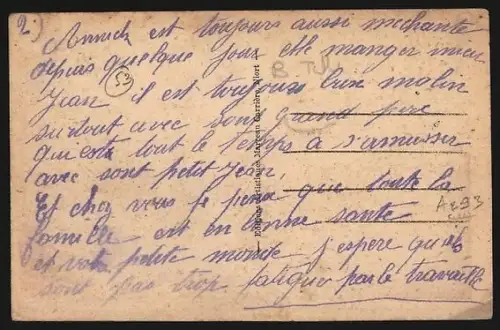 2)
Annick est toujours aussi mechante
depuis quelque jour elle manger mieu
Jean il est toujours bien malin
surtout avec sons grand père
qui est tout le temps a s'amuser
avec sont petit Jean,
Et chez vous je pense que toute la
famille est en bonne santé
et votre petite monde j'espere qu'ils
sont pas trop fatiguer par le travaille
53
A293
Editions Artistiques Marceau Carrière, Niort